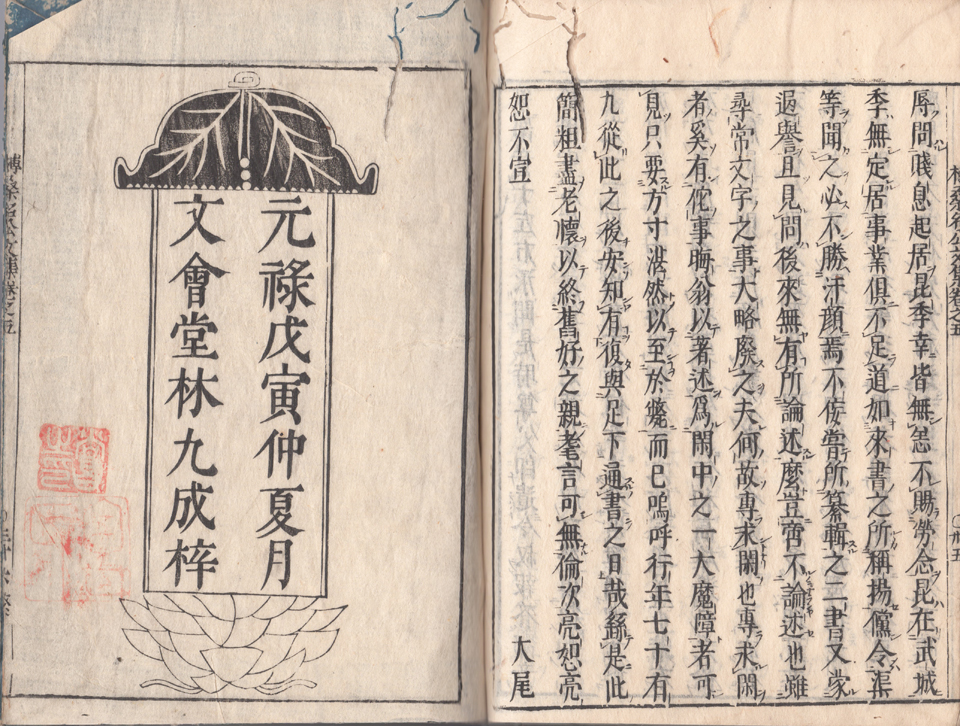 辱問賤息起居昆季幸皆無恙不賜勞念昆在武城
季無定居事業俱不足道如來書之所稱揚儻令渠
等聞之必不勝汗顏焉不佞嘗所纂輯之二書又蒙
過譽且見問後來無有所論述麼豈啻不論述也雖
尋常文字之事大略廢之夫何故專求閑也專求閑
者奚有佗事晦翁以著述爲閑中之一大魔障者可
見只要方寸湛然以至於斃而已嗚呼行年七十有
九從此之後安知有復與足下通書之日哉繇是此
簡粗盡老懷以終舊好之親耄言可無倫次亮恕亮
恕不宣 大尾
元祿戊寅仲夏月
文會堂林九成梓